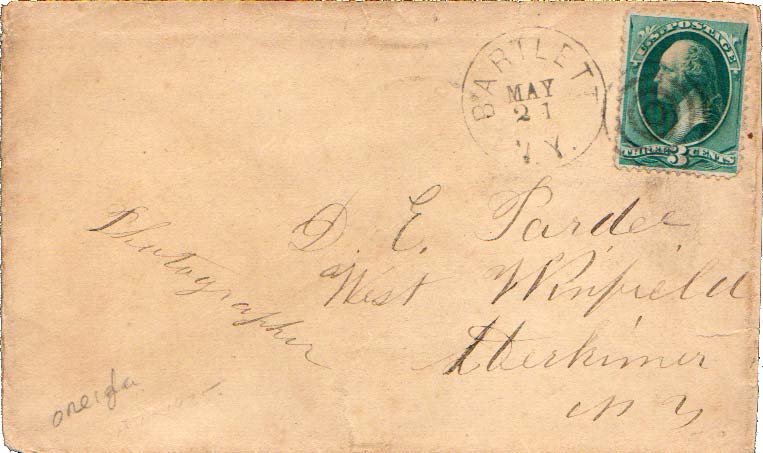 U.S. POSTAGE
THREE 3 CENTS
BARTLETT
MAY
21
N.Y.
D. E. Pardee
West Winfield
Herkimer
N Y
Photographer
oneida